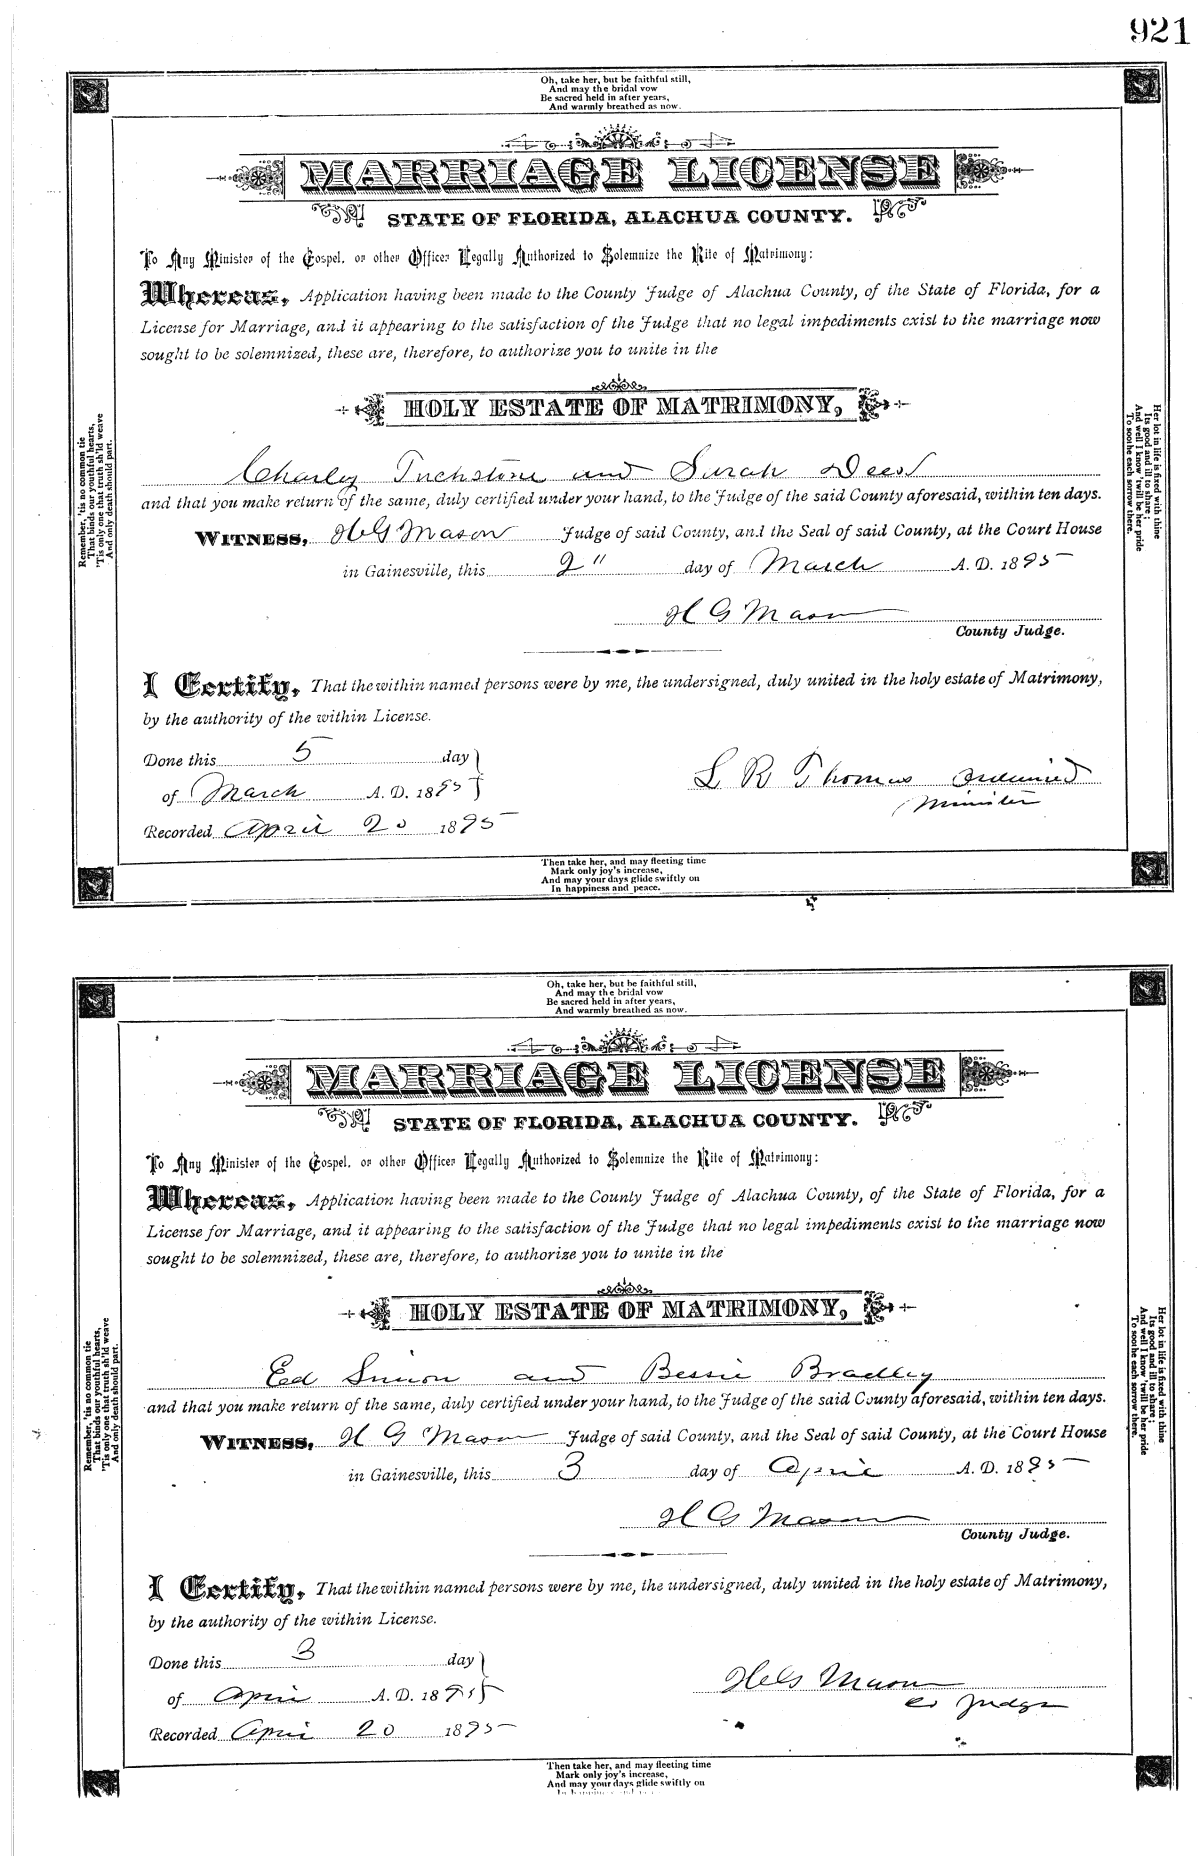 921
Oh, take her, but be faithful still,
And may the bridal vow
Be sacred held in after years,
And warmly breathed as now.
MARRIAGE LICENSE
STATE OF FLORIDA, ALACHUA COUNTY.
To Any Minister of the Gospel, or other Officer Legally Authorized to Solemnize the Rite of Matrimony:
Whereas, Application having been made to the County Judge of Alachua County, of the State of Florida, for a
License for Marriage, and it appearing to the satisfaction of the Judge that no legal impediments exist to the marriage now
sought to be solemnized, these are, therefore, to authorize you to unite in the
HOLY ESTATE OF MATRIMONY,
Charley Tuchstone and Sarah Dees
and that you make return of the same, duly certified under your hand, to the Judge of the said County aforesaid, within ten days.
WITNESS, H G Mason Judge of said County, and the Seal of said County, at the Court House
in Gainesville, this 2" day of March A. D. 1895
H G Mason
County Judge.
I Certify, That the within named persons were by me, the undersigned, duly united in the holy estate of Matrimony,
by the authority of the within License.
Done this 5 day
of March A. D. 1895
L R Thomas ordained
Minister
Recorded April 20 1895
Remember, 'tis no common tie
That binds our youthful hearts,
'Tis only one that truth sh'ld weave
And only death should part.
Her lot in life is fixed with thine
Its good and ill to share;
And well I know 'twill be her pride
To soothe each sorrow there.
Then take her, and may fleeting time
Mark only joy's increase,
And may your days glide swiftly on
In happiness and peace.
Oh, take her, but be faithful still,
And may the bridal vow
Be sacred held in after years,
And warmly breathed as now.
MARRIAGE LICENSE
STATE OF FLORIDA, ALACHUA COUNTY.
To Any Minister of the Gospel, or other Officer Legally Authorized to Solemnize the Rite of Matrimony:
Whereas, Application having been made to the County Judge of Alachua County, of the State of Florida, for a
License for Marriage, and it appearing to the satisfaction of the Judge that no legal impediments exist to the marriage now
sought to be solemnized, these are, therefore, to authorize you to unite in the
HOLY ESTATE OF MATRIMONY,
Ed Simon and Bessie Bradley
and that you make return of the same, duly certified under your hand, to the Judge of the said County aforesaid, within ten days.
WITNESS, H G Mason Judge of said County, and the Seal of said County, at the Court House
in Gainesville, this 3 day of April A. D. 1895
H G Mason
County Judge.
I Certify, That the within named persons were by me, the undersigned, duly united in the holy estate of Matrimony,
by the authority of the within License.
Done this 3 day
of April A. D. 1895
H G Mason
Co Judge
Recorded April 20 1895
Remember, 'tis no common tie
That binds our youthful hearts,
'Tis only one that truth sh'ld weave
And only death should part.
Her lot in life is fixed with thine
Its good and ill to share;
And well I know 'twill be her pride
To soothe each sorrow there.
Then take her, and may fleeting time
Mark only joy's increase,
And may your days glide swiftly on
In happiness and peace.